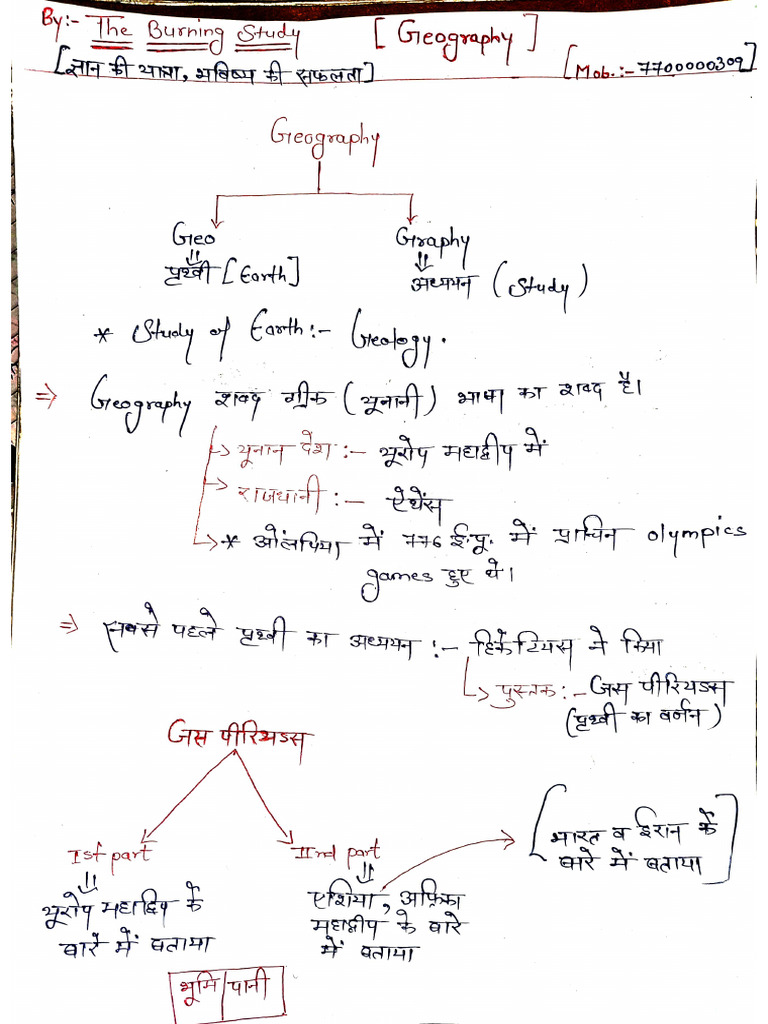 By:- The Burning Study [Geography]
[ज्ञान की यात्रा, भविष्य की सफलता] [Mob.:- 7700000309]
Geography
Geo Graphy
पृथ्वी [Earth] अध्ययन (Study)
* Study of Earth:- Geology.
⇒ Geography शब्द ग्रीक (यूनानी) भाषा का शब्द है।
→ यूनान देश :- यूरोप महाद्वीप में
→ राजधानी :- ऐथेंस
→ * ओलंपिया में 776 ई.पू. में प्राचिन olympics
games हुए थे।
⇒ सबसे पहले पृथ्वी का अध्ययन :- हिकेटियस ने किया
→ पुस्तक:- जस पीरियडस
(पृथ्वी का वर्णन)
जस पीरियडस
Ist part IInd part
[भारत व ईरान के
बारे में बताया]
यूरोप महाद्विप के
बारे में बताया
एशिया, अफ्रिका
महाद्वीप के बारे
में बताया
भूमि/पानी